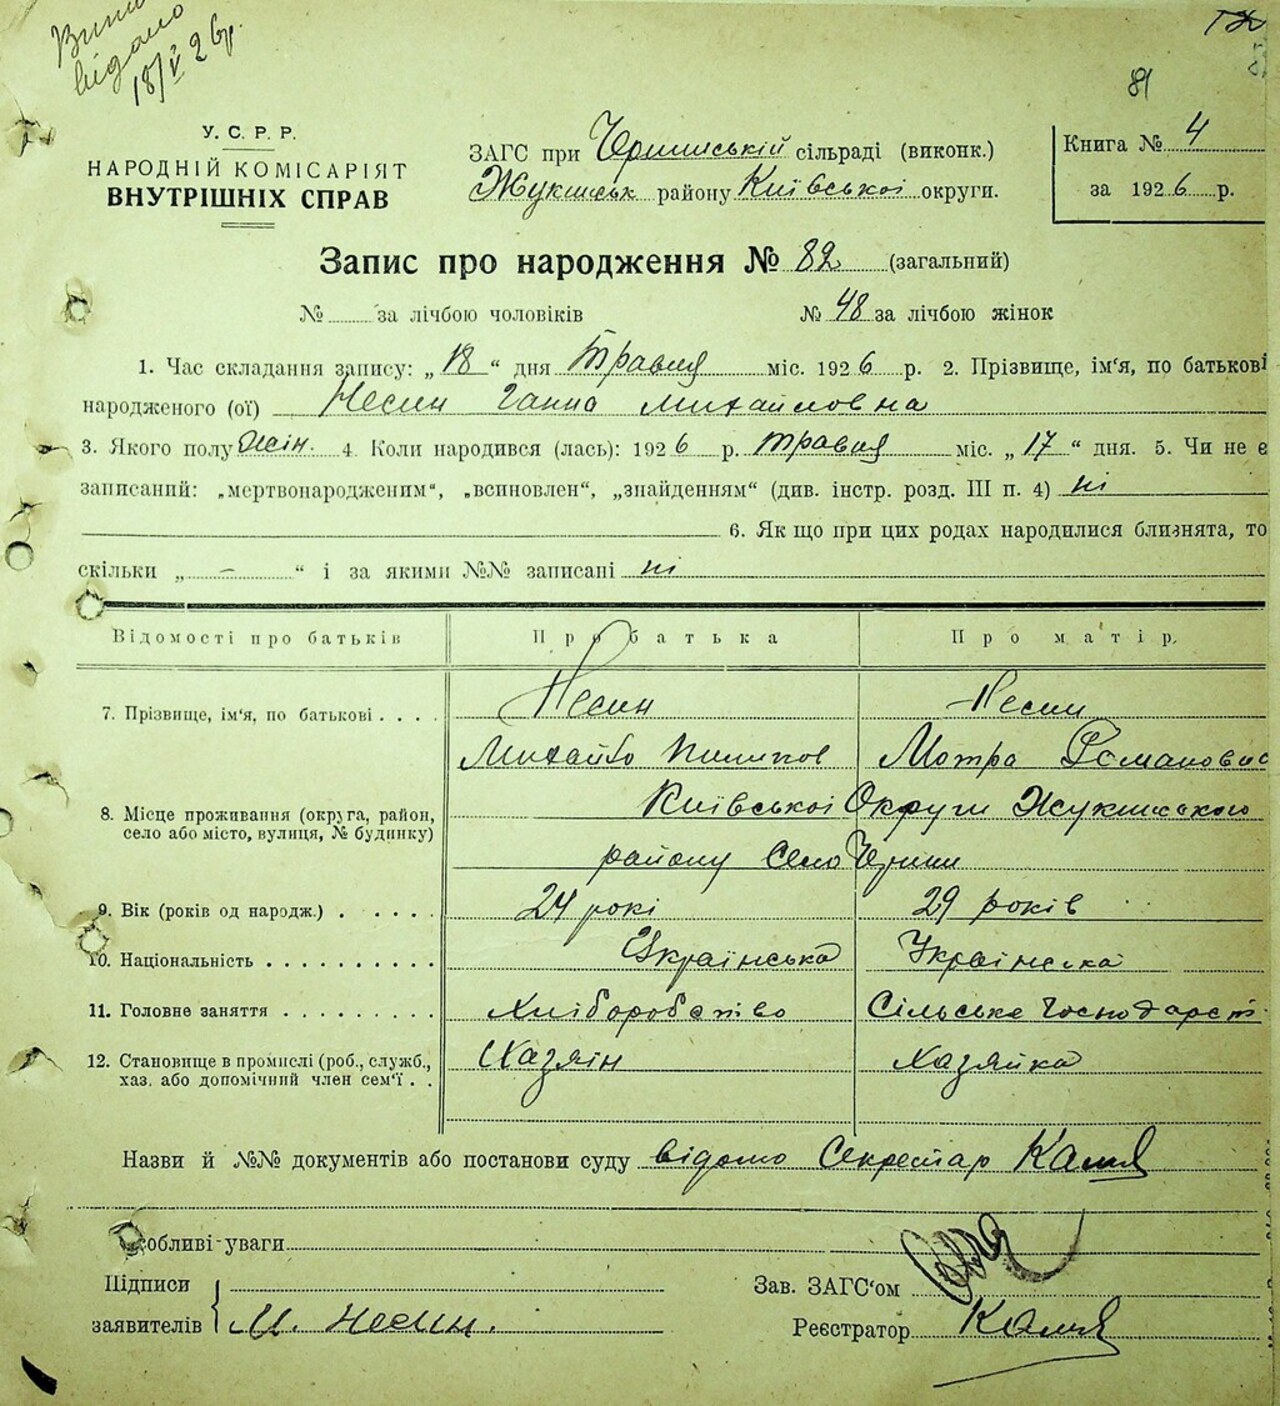 видано
18/V 26р.
81
У. С. Р. Р.
НАРОДНІЙ КОМІСАРІЯТ
ВНУТРІШНІХ СПРАВ
ЗАГС при Чернинській сільраді (виконк.)
Жукинськ району Київської округи.
Книга № 4
за 1926 р.
Запис про народження № 82 (загальний)
№ за лічбою чоловіків № 48 за лічбою жінок
1. Час складання запису: „18“ дня Травня міс. 1926 р. 2. Прізвище, ім'я, по батькові
народженого (ої) Несин Ганна Михайловна
3. Якого полу жін. 4. Коли народився (лась): 1926 р. травня міс. „17“ дня. 5. Чи не є
записаний: „мертвонародженим“, „всиновлен“, „знайденням“ (див. інстр. розд. III п. 4) ні
6. Як що при цих родах народилися близнята, то
скільки „ — “ і за якими №№ записані ні
Відомості про батьків Про батька Про матір.
7. Прізвище, ім'я, по батькові . . . . Несин Несин
Михайло Пилипов Мотра Романовна
8. Місце проживання (округа, район, село або місто, вулиця, № будинку) Київської Округи Жукинського
району Село Чернин
9. Вік (років од народж.) . . . . . 24 рокі 29 років
10. Національність . . . . . . . . . . Українська Українська
11. Головне заняття . . . . . . . . . Хліборобство Сільське Господарст.
12. Становище в промислі (роб., служб., хаз. або допомічний член сем'ї . . Хазяін Хазяйка
Назви й №№ документів або постанови суду відомо Секретар
Особливі уваги
Підписи
заявителів М. Несин.
Зав. ЗАГС'ом
Реєстратор